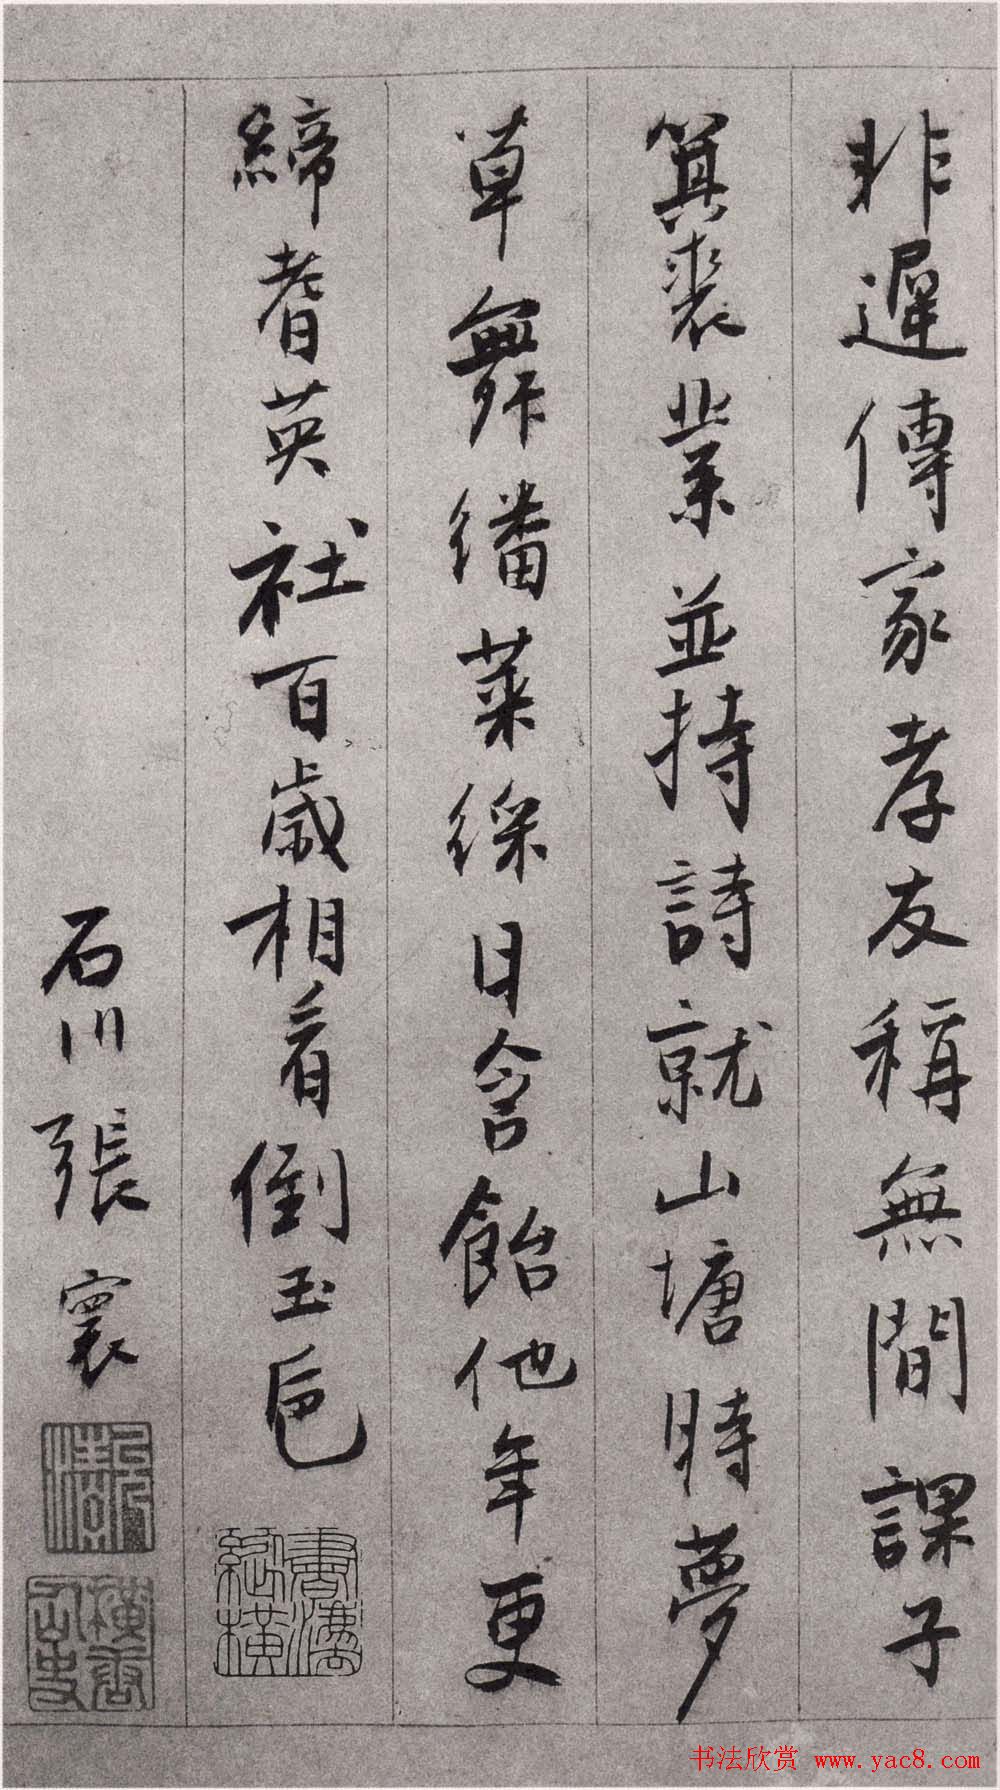 非遲傳家孝友稱無間課子
箕裘業並持詩就山塘時夢
草舞繙菜綵日含飴他年更
締耆英社百歲相看倒玉卮
石川張寰
書漢縱橫
书法欣赏 www.yac8.com